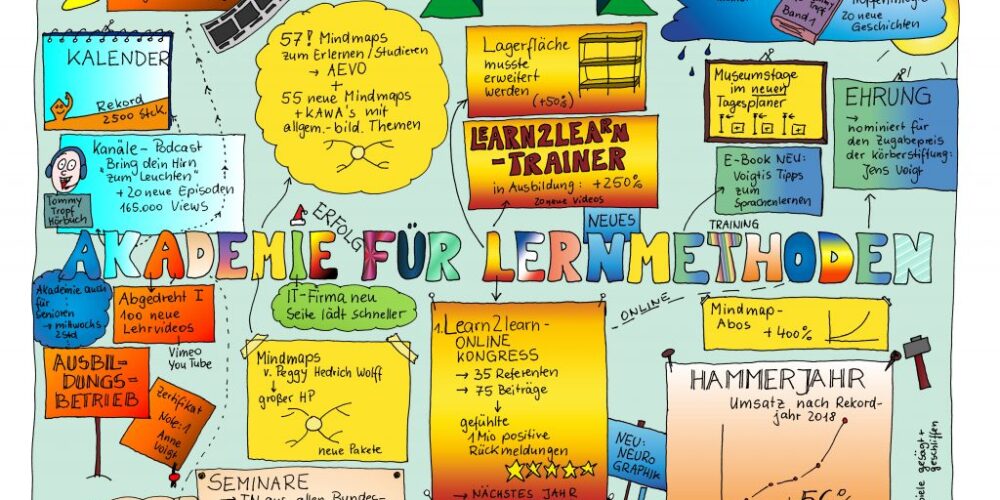 Band 1
20 neue
Geschichten
KALENDER
Rekord
2500 Stck.
57! Mindmaps
zum Erlernen/Studieren
→ AEVO
+
55 neue Mindmaps
+ KAWA's mit
allgem.-bild. Themen
Lagerfläche
musste
erweitert
werden
(+50%)
Museumstage
im neuen
Tagesplaner
EHRUNG
→
nominiert für
den Zugabepreis
der Körberstiftung:
Jens Voigt
Kanäle - Podcast
Bring dein Hirn
"zum Leuchten"
+ 20 neue Episoden
165.000 Views
Tommy
Tropf
Hörbuch
LEARN2LEARN
-TRAINER
in Ausbildung: +250%
20 neue Videos
E-Book NEU:
Voigtis Tipps
zum
Sprachenlernen
ERFOLG
NEUES
TRAINING
AKADEMIE FÜR LERNMETHODEN
Akademie auch
für
Senioren
→ mittwochs
2Std
Abgedreht I
100 neue
Lehrvideos
Vimeo
YouTube
IT-Firma neu
Seite lädt schneller
ONLINE
Mindmap-
Abos
+ 400%
AUSBIL-
DUNGS-
BETRIEB
Zertifikat
Note: 1
Anne
Voigt
Mindmaps
v. Peggy Hedrich Wolff
↓
großer HP
neue Pakete
1. Learn2learn-
ONLINE
KONGRESS
→ 35 Referenten
→ 75 Beiträge
↓
gefühlte
1 Mio positive
Rückmeldungen
→ NÄCHSTES JAHR
NEU:
NEURO
GRAPHIK
HAMMERJAHR
Umsatz nach Rekord-
jahr 2018
gesägt +
geschliffen
SEMINARE
→ TN aus allen Bundes-